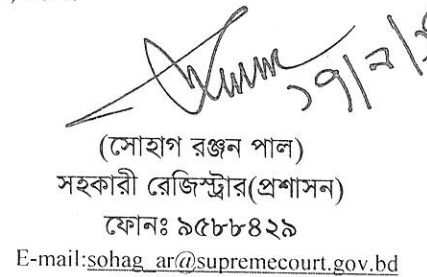 (সোহাগ রঞ্জন পাল)
সহকারী রেজিস্ট্রার(প্রশাসন)
ফোনঃ ৯৫৮৮৪২৯
E-mail:sohag_ar@supremecourt.gov.bd